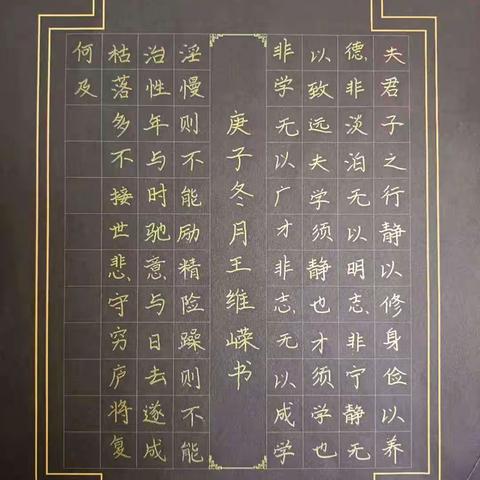 夫君子之行静以修身俭以养
德非淡泊无以明志非宁静无
以致远夫学须静也才须学也
非学无以广才非志无以成学
庚子冬月王维嵘书
淫慢则不能励精险躁则不能
治性年与时驰意与日去遂成
枯落多不接世悲守穷庐将复
何及